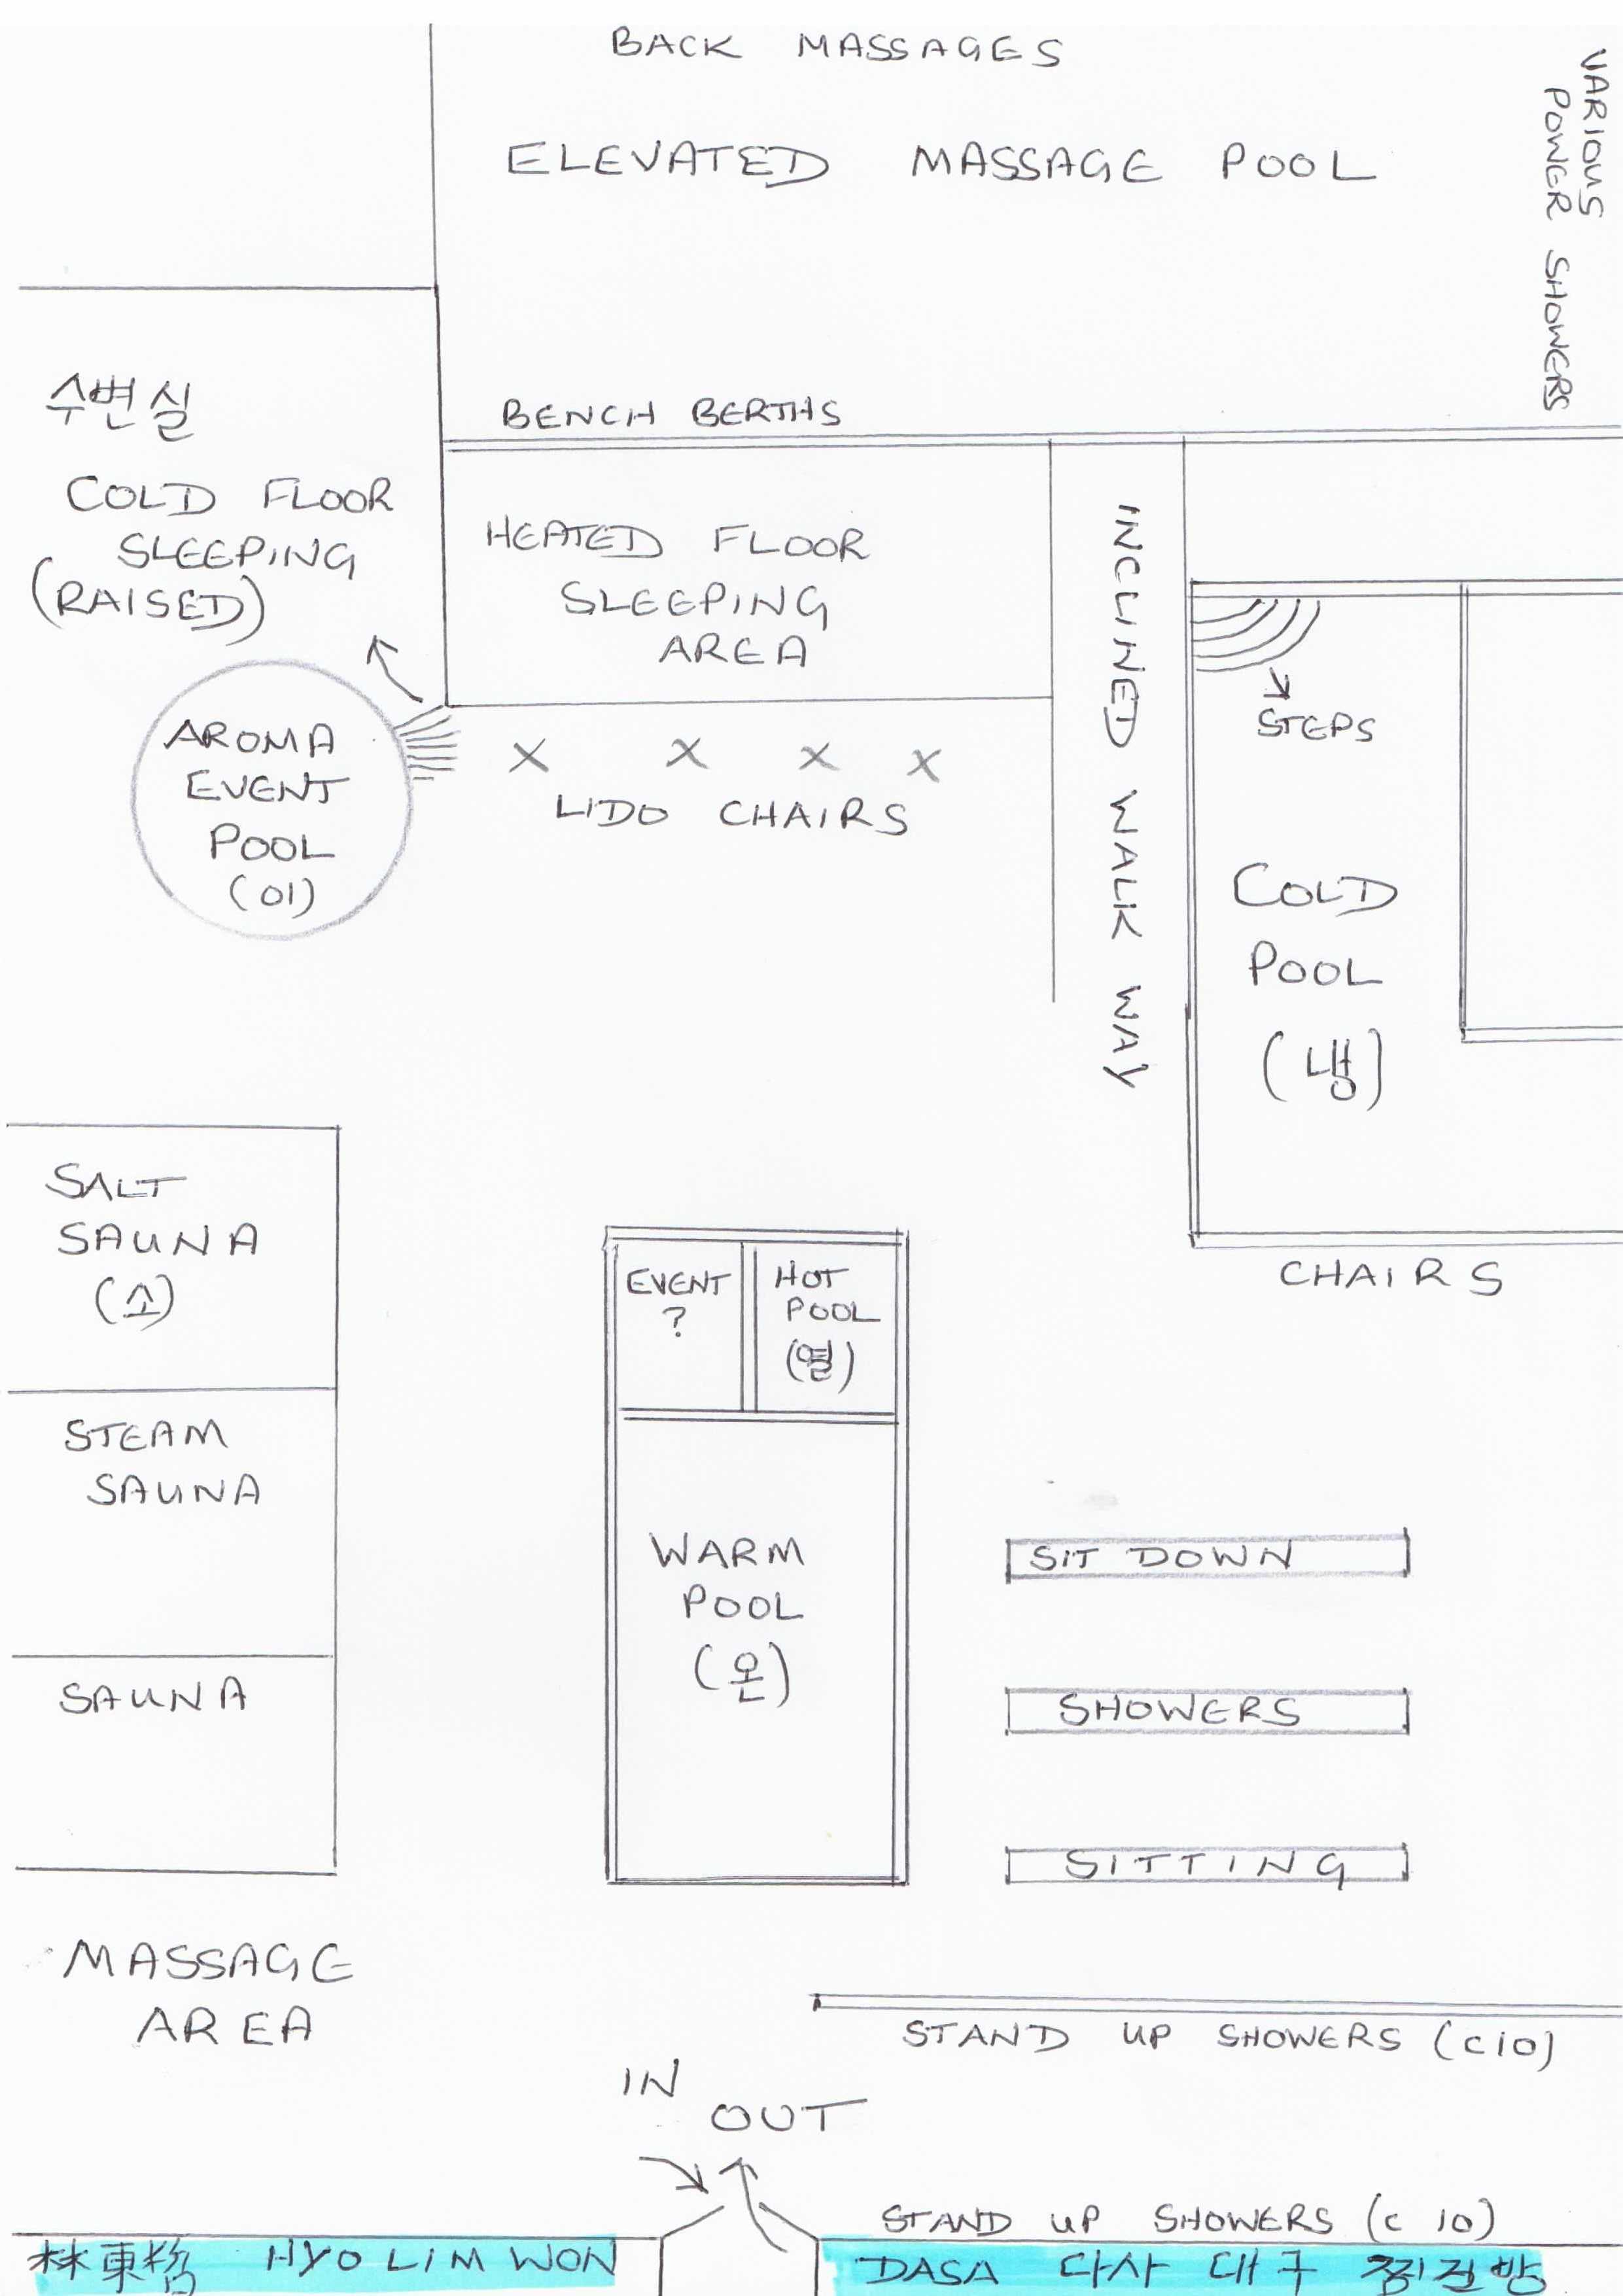 BACK MASSAGES
ELEVATED MASSAGE POOL
VARIOUS
POWER SHOWERS
수변실
COLD FLOOR
SLEEPING
(RAISED)
BENCH BERTHS
HEATED FLOOR
SLEEPING
AREA
INCLINED WALK WAY
STEPS
AROMA
EVENT
POOL
(이)
X X X X
LIDO CHAIRS
COLD
POOL
(냉)
CHAIRS
SALT
SAUNA
(소)
STEAM
SAUNA
SAUNA
EVENT
?
HOT
POOL
(열)
WARM
POOL
(온)
SIT DOWN
SHOWERS
SITTING
MASSAGE
AREA
STAND UP SHOWERS (C10)
IN
OUT
STAND UP SHOWERS (C 10)
林東 HYO LIM WON
DASA 다사 대구 찜질방